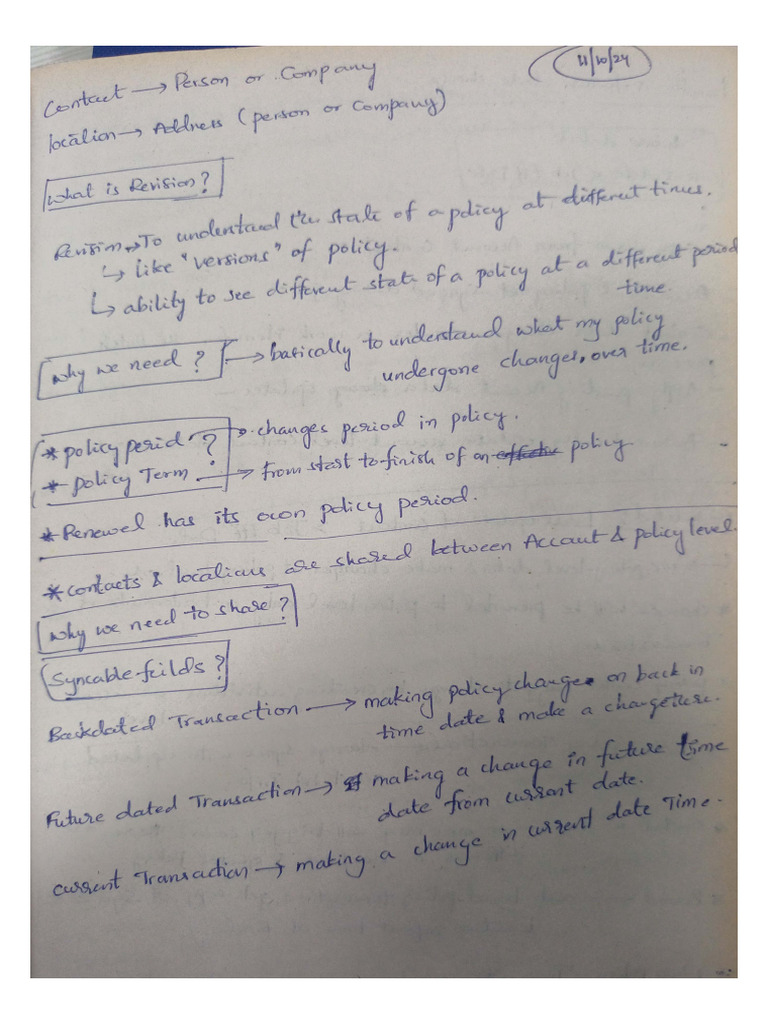 11/10/24
Contact → Person or Company
location → Address (person or Company)
What is Revision?
Revision → To understand the state of a policy at different times.
↳ Like "versions" of policy.
↳ ability to see different state of a policy at a different period
time.
Why we need? → basically to understand what my policy
undergone changes, over time.
* policy period ? → changes period in policy.
* policy Term → From start to finish of an effective policy
* Renewel has its own policy period.
* contacts & locations are shared between Account & policy level.
Why we need to share?
Syncable-feilds?
Backdated Transaction → making policy change on back in
time date & make a change
Future dated Transaction → making a change in future time
date from current date.
current Transaction → making a change in current date Time.